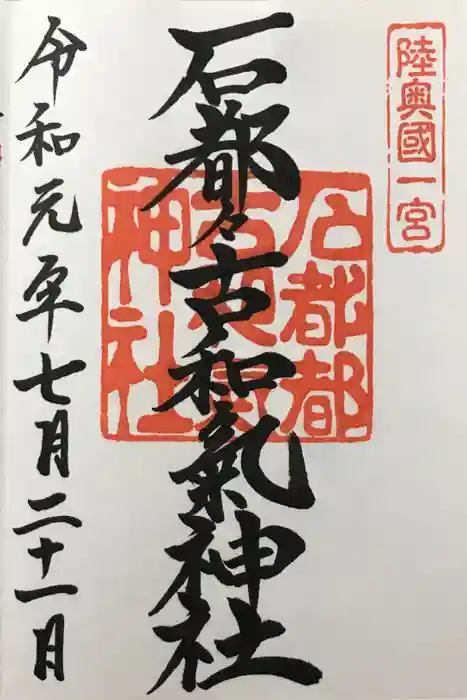 陸奥國一宮
石都々古和氣神社
石都都
古和氣
神社
令和元年七月二十一日